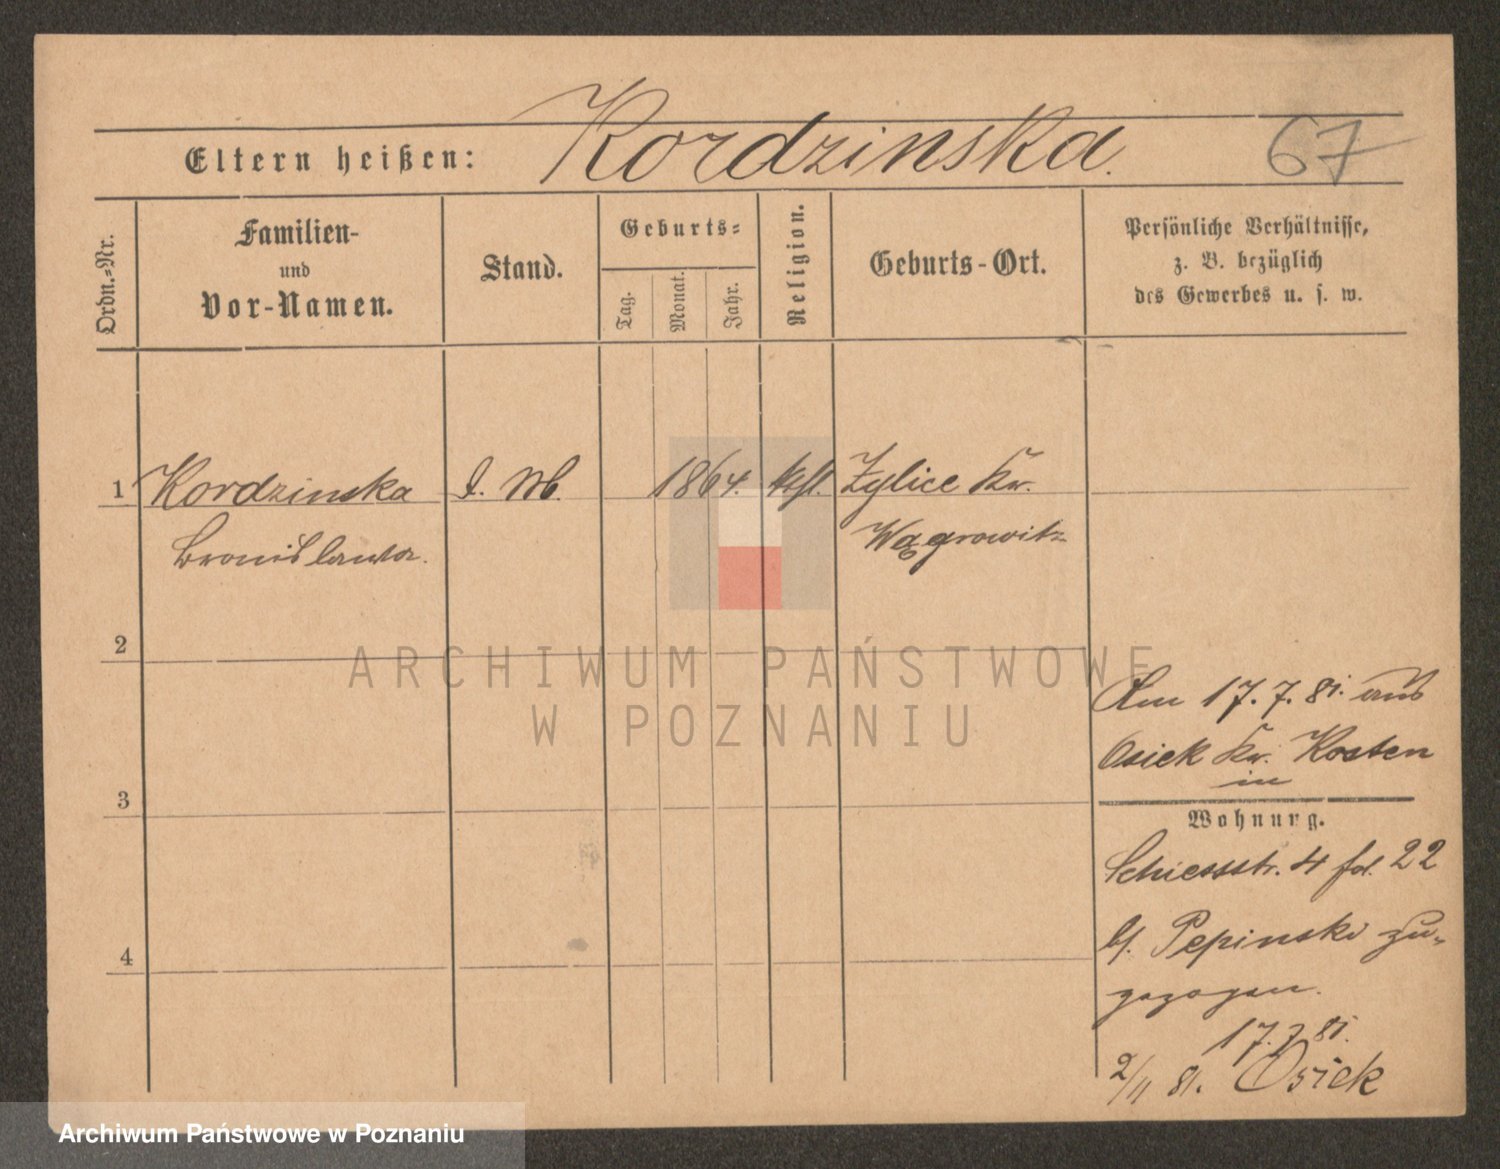 Eltern heißen: Kordzinska. 67
Ordn.-Nr.
Familien-
und
Vor-Namen.
Stand.
Geburts-
Tag.
Monat.
Jahr.
Religion.
Geburts-Ort.
Persönliche Verhältnisse,
z. B. bezüglich
des Gewerbes u. s. w.
1 Kordzinska 1864. kthl. Zylice Kr.
Bronislawa. Wągrowitz
2
3
4
Am 17. 7. 81. aus
Osiek Kr. Kosten
in
Wohnung.
Schiessstr. 4 fol. 22
bf. Pepinski zu-
gezogen.
17. 7 81.
2/11 81. Osiek
ARCHIWUM PAŃSTWOWE
W POZNANIU
Archiwum Państwowe w Poznaniu